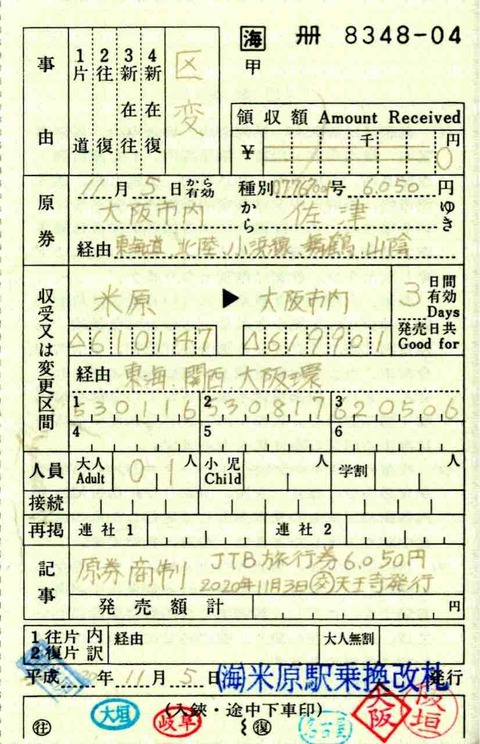 海 冊 8348-04
甲
事由
1片道
2往復
3新在往
4新在復
区変
領収額 Amount Received
千 円
¥ 0
原券
11月5日から有効 種別 号 6,050円
大阪市内から佐津ゆき
経由 東海道、北陸、小浜線、舞鶴、山陰
収受又は変更区間
米原 ▶ 大阪市内
3日間有効 Days
発売日共 Good for
△610147 △619901
経由 東海・関西・大阪環
1 530116 2 530817 3 620506
4 5 6
人員 大人 Adult 01人 小児 Child 人 学割 人
接続
再掲 連社1 連社2
記事
原券商制 JTB旅行券6,050円
2020年11月3日㋛天王寺発行
発売額計 円
1往片 2復片 内訳 経由 大人無割
平成 年11月5日 (海)米原駅乗換改札 発行
(入鋏・途中下車印)
往 大垣 岐阜 復 名古屋 大阪 大垣